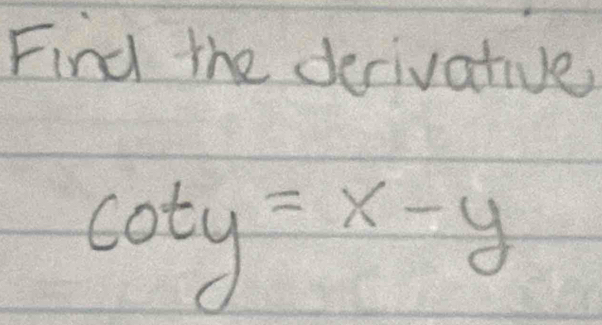 Find the derivative
coty = x - y